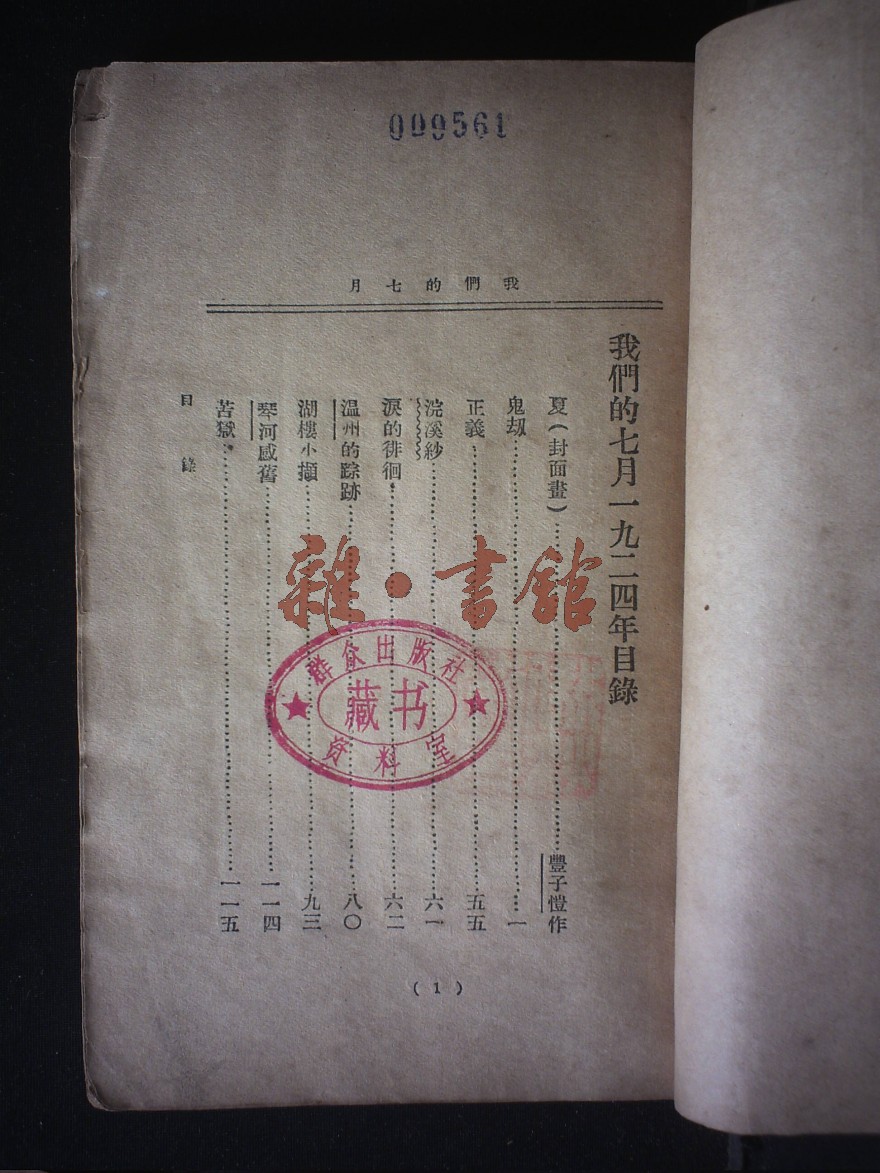 009561
我們的七月
我們的七月一九二四年目錄
夏(封面畫)……豐子愷作
鬼刼……一
正義……五五
浣溪紗……六一
淚的徘徊……六二
温州的踪跡……八〇
湖樓小擷……九三
琴河感舊……一一四
苦獄……一一五
目錄
(1)
雜·書館
群众出版社
藏书
资料室